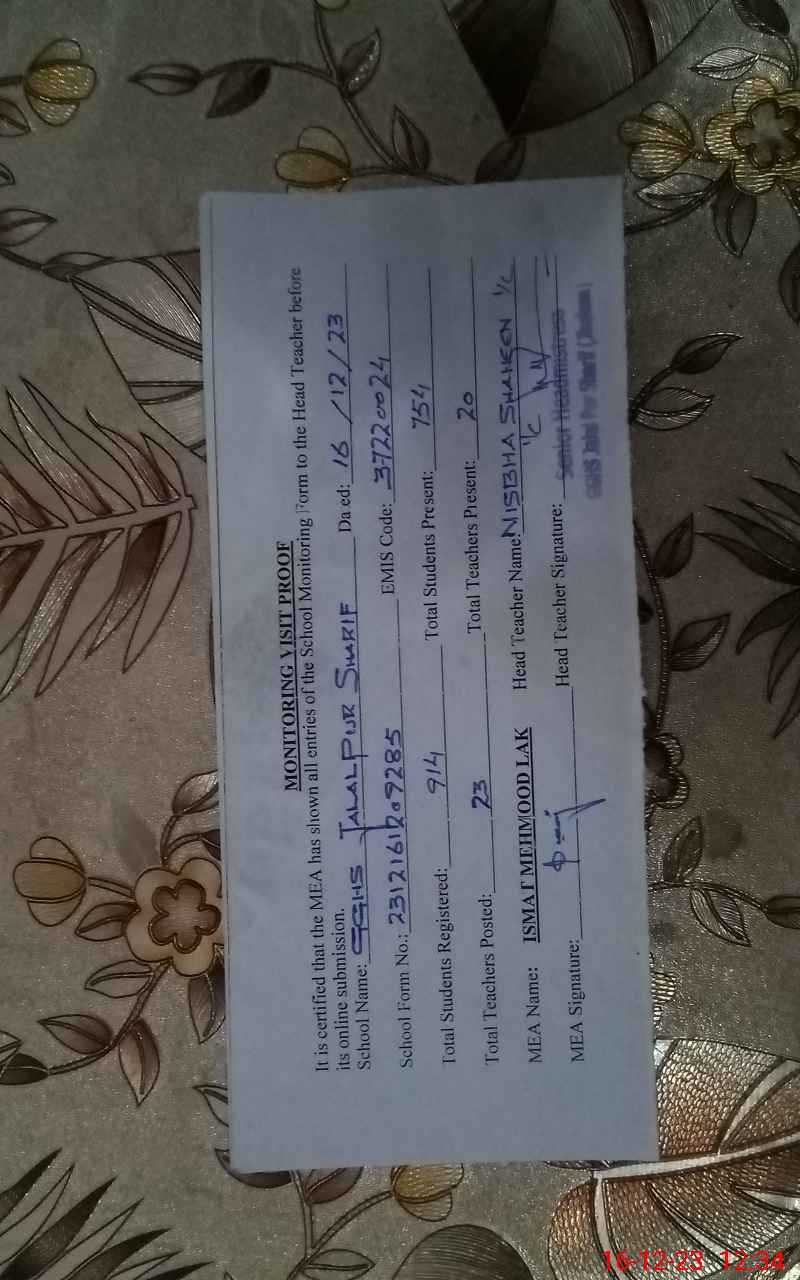 MONITORING VISIT PROOF
It is certified that the MEA has shown all entries of the School Monitoring Form to the Head Teacher before
its online submission.
School Name: GGHS JALALPUR SHARIF Da ed: 16 /12/23
School Form No.: 23121611209285 EMIS Code: 37220024
Total Students Registered: 914 Total Students Present: 754
Total Teachers Posted: 23 Total Teachers Present: 20
MEA Name: ISMAT MEHMOOD LAK Head Teacher Name: NISBHA SHAHEEN I/C
I/C
MEA Signature: Head Teacher Signature:
Senior Headmistress
GGHS Jalal Pur Sharif (Jhelum)
16-12-23 12:34